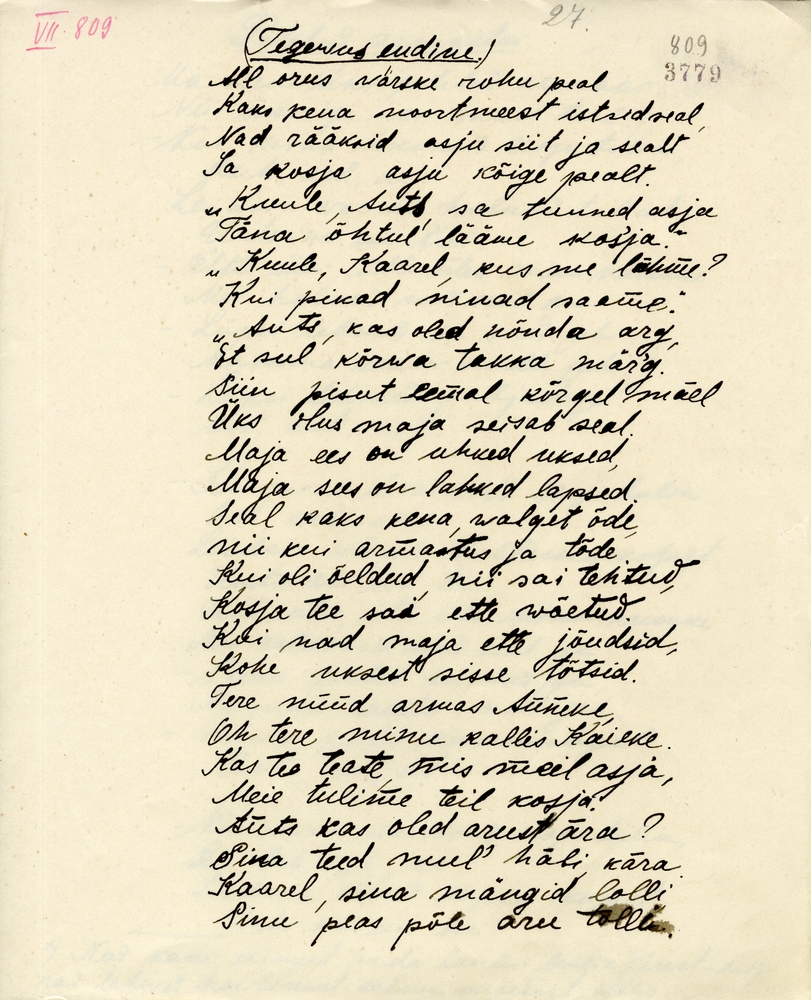 VII. 809
27.
809
3779
(Tegewus endine.)
All orus värske rohu peal
Kaks kena noortmeest istsed seal,
Nad rääksid asju siit ja sealt
Ja kosja asju kõige pealt.
„Kuule, Ants, sa tunned asja
Täna õhtul lääme kosja."
„Kuule, Kaarel, kus me lähme?
Kui pikad ninad saame."
„Ants, kas oled nõnda arg,
Et sul kõrwa takka märg.
Siin pisut eemal kõrgel mäel
Üks ilus maja seisab seal.
Maja ees on uhked uksed,
Maja sees on lahked lapsed.
Seal kaks kena, walget õde,
nii kui armastus ja tõde
Kui oli õeldud, nii sai tehtud,
Kosja tee sai ette wõetud.
Kui nad maja ette jõudsid,
Kohe uksest sisse tõtsid.
Tere nüüd armas Anneke,
Oh tere minu kallis Kaieke.
Kas te teate, mis meil asja,
Meie tulime teil kosja.
Ants kas oled arust ära?
Sina teed mul' häbi, kära.
Kaarel, sina mängid lolli
Sinu peas põle aru tolli.